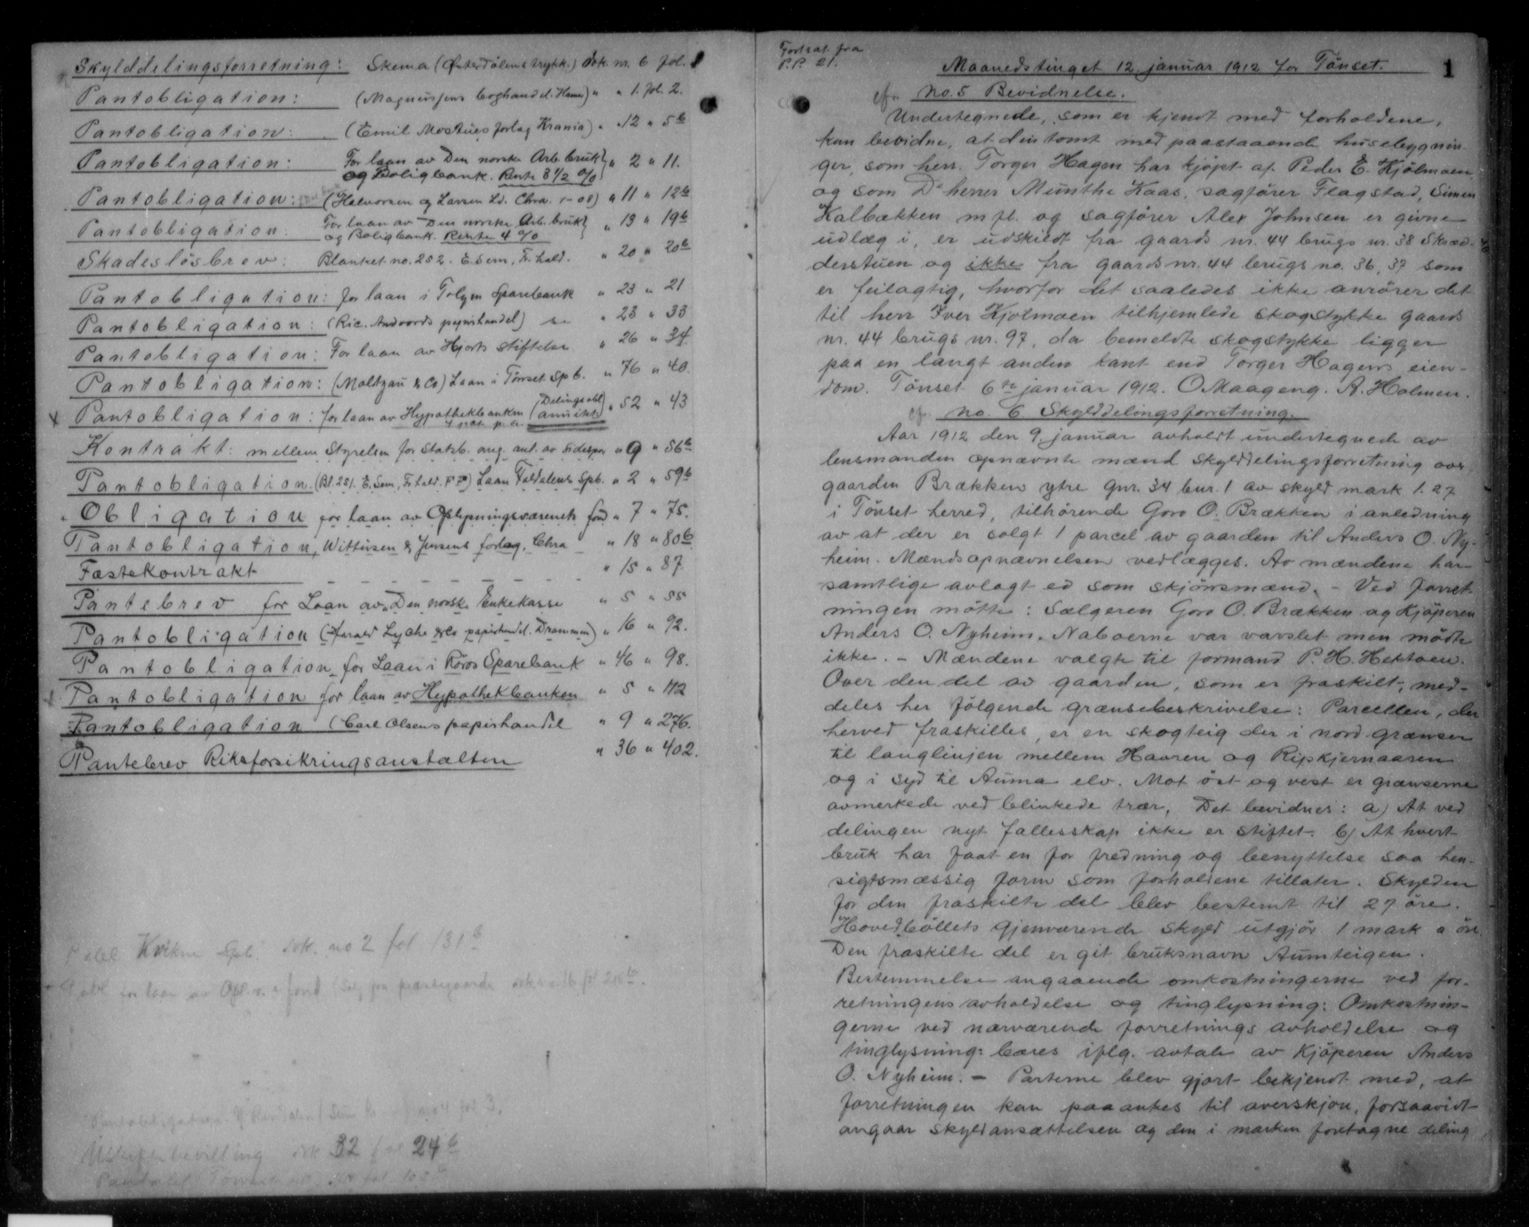 Skylddelingsforretning: Skema (Østerdølens trykk.) Dok. nr. 6 fol. 1
Pantobligation: (Magnussens boghandel. Hamar) " " 1. fol. 2.
Pantobligation: (Emil Mostues forlag Krania) " 12 " 5b
Pantobligation: For laan av Den norske Arb. bruk
og Boligbank. Rente 3 1/2 % " 2 " 11.
Pantobligation: (Halvorsen og Larsen Ld. Chra. 1-08) " 11 " 12b
Pantobligation: For laan av Den norske Arb. bruk
og Boligbank. Rente 4 % " 13 " 19b
Skadesløsbrev: Blanket no. 202. E. Sem, Fr.hald. " 20 " 20b
Pantobligation: for laan i Tolgen Sparebank " 23 " 21
Pantobligation: (Ric. Andvords papirhandel) " 23 " 33
Pantobligation: For laan av Hjorts stiftelse " 26 " 34
Pantobligation: (Moltzau & Co) Laan i Tønset Spb. " 76 " 40.
Pantobligation: for laan av Hypothekbanken (Delingsobl. annuitet) " 52 " 43
Kontrakt: mellem Styrelsen for Statsb. ang. anl. av sidespor " 9 " 56b
Pantobligation. (Bl. 251. E. Sem, Fr.hald. F.F.) Laan Foldalens Spb. " 2 " 59b
Obligation for laan av Opdyrkningsvæsenets fond " 7 " 75.
Pantobligation, Wittusen & Jensens forlag, Chra " 18 " 80b
Fæstekontrakt " 15 " 87
Pantebrev for Laan av Den norske Enkekasse " 5 " 88
Pantobligation (Harald Lyche & Co papirhandel. Drammen) " 16 " 92.
Pantobligation for Laan i Røros Sparebank " 46 " 98.
Pantobligation for laan av Hypothekbanken " 5 " 112
Pantobligation (Carl Olsens papirhandel " 9 " 276.
Pantebrev Riksforsikringsanstalten " 36 " 402.
P obl Kvikne Spb. dok. no 2 fol 131b
for laan av fond
Pantobligation fol 3.
Utskiftsbevilling dok 32 fol 24b
Fortsat fra
P.P. 21.
Maanedstinget 12. januar 1912 for Tønset. 1
No. 5 Bevidnelse.
Undertegnede, som er kjendt med forholdene,
kan bevidne, at den tomt med paastaaende husebygnin-
ger, som herr. Torger Hagen har kjøpt af Peder E. Kjølmoen
og som D' herrer Munthe Kaas, sagfører Flagstad, Simen
Kalbækken m.fl. og sagfører Alex Johnsen er givne
udlæg i, er udskildt fra gaards nr. 44 brugs nr. 38 Skræd-
derstuen og ikke fra gaards nr. 44 brugs no. 36, 37 som
er feilagtig, hvorfor det saaledes ikke anrører det
til herr Iver Kjølmoen tilhjemlede skogstykke gaards
nr. 44 brugs nr. 97, da bemeldte skogstykke ligger
paa en langt anden kant end Torger Hagens eien-
dom. Tønset 6te januar 1912. O Maageng. A. Holmen.
No. 6 Skylddelingsforretning.
Aar 1912 den 9. januar avholdt undertegnede av
lensmanden opnævnte mænd skylddelingsforretning over
gaarden Brækken ytre gnr. 34 bnr. 1 av skyld mark 1.27
i Tønset herred, tilhørende Goro O. Brækken i anledning
av at der er solgt 1 parcel av gaarden til Anders O. Ny-
heim. Mændsopnævnelsen vedlægges. Av mændene har
samtlige avlagt ed som skjønsmænd. - Ved forret-
ningen møtte: Sælgeren Goro O. Brækken og Kjøperen
Anders O. Nyheim. Naboerne var varslet men mødte
ikke. - Mændene valgte til formand P. H. Hektoen.
Over den del av gaarden, som er fraskilt, med-
deles her følgende grænsebeskrivelse: Parcellen, der
herved fraskilles, er en skogteig der i nord grænser
til langlinjen mellem Haaren og Ripkjernaasen
og i syd til Auma elv. Mot øst og vest er grænserne
avmerkede ved blinkede trær. Det bevidnes: a) At ved
delingen nyt fællesskap ikke er stiftet. b) At hvert
bruk har faat en for fredning og benyttelse saa hen-
sigtsmæssig form som forholdene tillater. Skylden
for den fraskilte del blev bestemt til 27 øre.
Hovedbøllets gjenværende skyld utgjør 1 mark 0 øre
Den fraskilte del er git bruksnavn Aumteigen.
Bestemmelse angaaende omkostningerne ved for-
retningens avholdelse og tinglysning: Omkostnin-
gerne ved nærværende forretnings avholdelse og
tinglysning bæres iflg. avtale av Kjøperen Anders
O. Nyheim. - Parterne blev gjort bekjendt med, at
forretningen kan paaankes til overskjøn, forsaavidt
angaar skyldansættelsen og den i marken foretagne deling